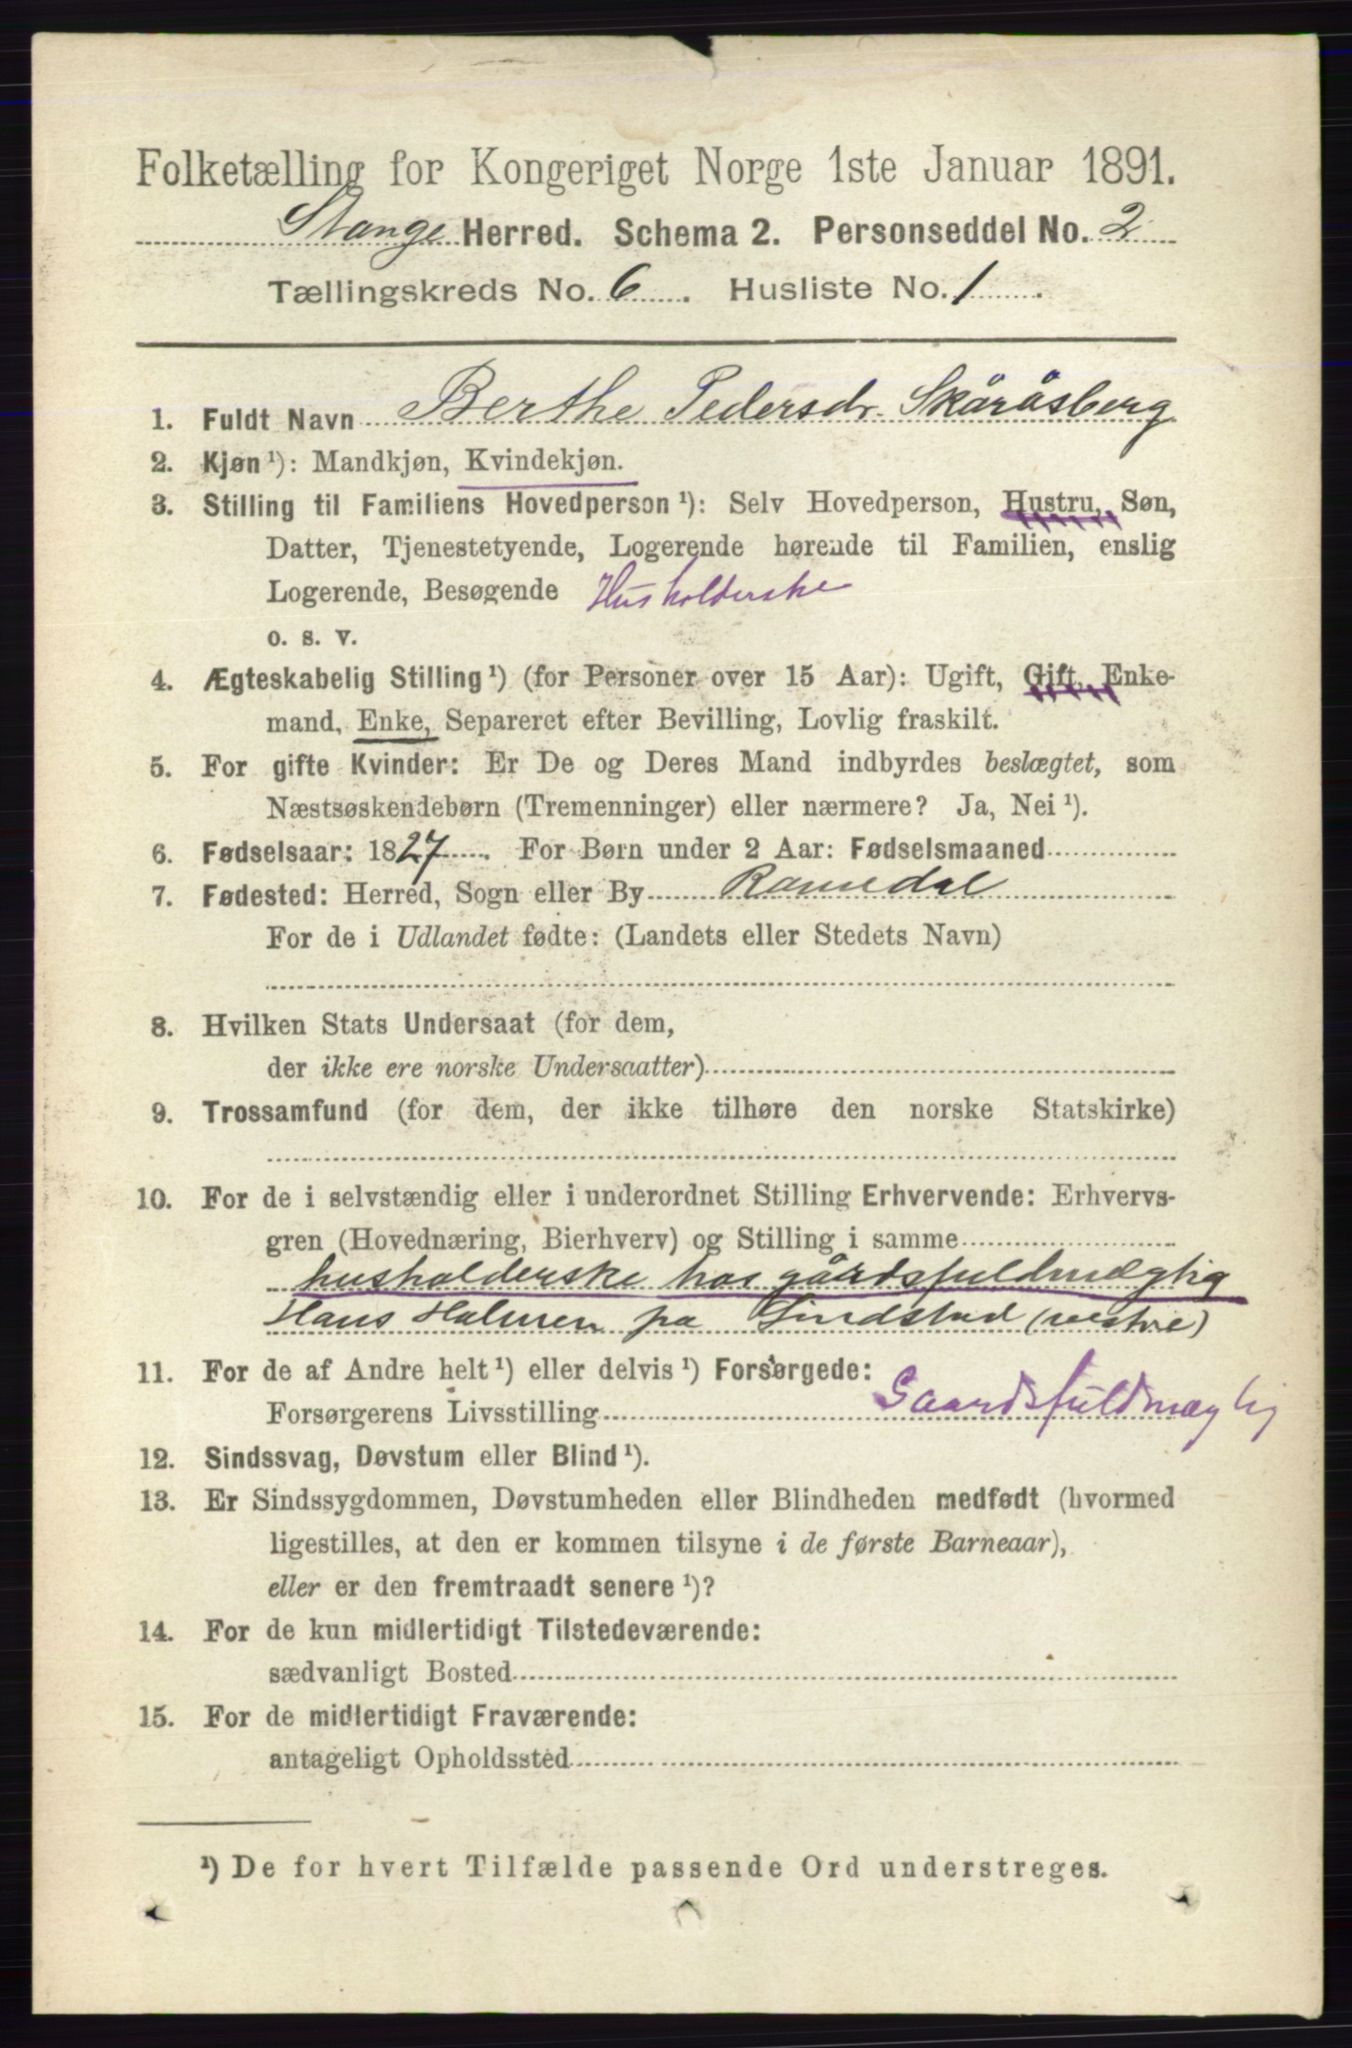 Folketælling for Kongeriget Norge 1ste Januar 1891.
Stange Herred. Schema 2. Personseddel No. 2
Tællingskreds No. 6. Husliste No. 1.
1. Fuldt Navn Berthe Pedersdr. Skåråsberg
2. Kjøn ¹): Mandkjøn, Kvindekjøn.
3. Stilling til Familiens Hovedperson ¹): Selv Hovedperson, Hustru, Søn,
Datter, Tjenestetyende, Logerende hørende til Familien, enslig
Logerende, Besøgende Husholderske
o. s. v.
4. Ægteskabelig Stilling ¹) (for Personer over 15 Aar): Ugift, Gift, Enke-
mand, Enke, Separeret efter Bevilling, Lovlig fraskilt.
5. For gifte Kvinder: Er De og Deres Mand indbyrdes beslægtet, som
Næstsøskendebørn (Tremenninger) eller nærmere? Ja, Nei ¹).
6. Fødselsaar: 1827. For Børn under 2 Aar: Fødselsmaaned
7. Fødested: Herred, Sogn eller By Romedal
For de i Udlandet fødte: (Landets eller Stedets Navn)
8. Hvilken Stats Undersaat (for dem,
der ikke ere norske Undersaatter)
9. Trossamfund (for dem, der ikke tilhøre den norske Statskirke)
10. For de i selvstændig eller i underordnet Stilling Erhvervende: Erhvervs-
gren (Hovednæring, Bierhverv) og Stilling i samme
husholderske hos gårdsfuldmægtig
Hans Halmen på Lindstad (vestre)
11. For de af Andre helt ¹) eller delvis ¹) Forsørgede:
Forsørgerens Livsstilling Gaardsfuldmægtig
12. Sindssvag, Døvstum eller Blind ¹).
13. Er Sindssygdommen, Døvstumheden eller Blindheden medfødt (hvormed
ligestilles, at den er kommen tilsyne i de første Barneaar),
eller er den fremtraadt senere ¹)?
14. For de kun midlertidigt Tilstedeværende:
sædvanligt Bosted
15. For de midlertidigt Fraværende:
antageligt Opholdssted
¹) De for hvert Tilfælde passende Ord understreges.